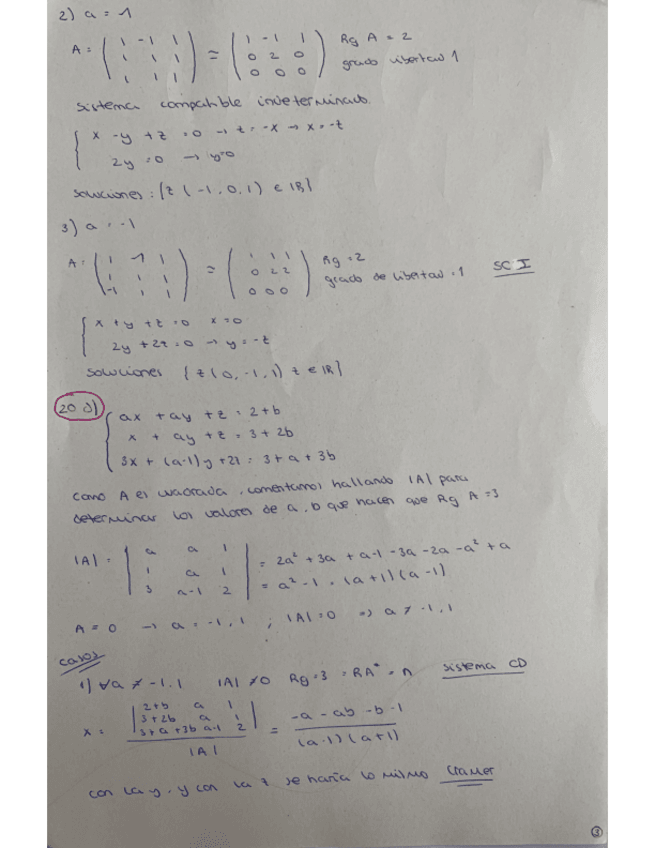 2) a = 1
A = ( 1 -1 1 / 1 1 1 / 1 1 1 ) ≃ ( 1 -1 1 / 0 2 0 / 0 0 0 ) Rg A = 2
grado libertad 1
sistema compatible indeterminado.
{ x - y + z = 0 → z = -x → x = -z
2y = 0 → y=0
soluciones : {z (-1, 0, 1) ∈ IR}
3) a = -1
A = ( 1 -1 1 / 1 1 1 / -1 1 1 ) ≃ ( 1 1 1 / 0 2 2 / 0 0 0 ) Rg = 2
grado de libertad = 1 SCI
{ x + y + z = 0 x = 0
2y + 2z = 0 → y = -z
soluciones { z (0, -1, 1) z ∈ IR}
20 d) { ax + ay + z = 2+b
x + ay + z = 3 + 2b
3x + (a-1)y + 2z = 3 + a + 3b
como A es cuadrada, comentamos hallando |A| para
determinar los valores de a, b que hacen que Rg A = 3
|A| = | a a 1 / 1 a 1 / 3 a-1 2 | = 2a² + 3a + a-1 - 3a - 2a - a² + a
= a² - 1 = (a+1)(a-1)
A = 0 → a = -1, 1 ; |A| = 0 => a ≠ -1, 1
casos
1) ∀a ≠ -1, 1 |A| ≠ 0 Rg = 3 = RA* = n sistema CD
x = | 2+b a 1 / 3+2b a 1 / 3+a+3b a-1 2 | / |A| = -a - ab - b - 1 / (a-1)(a+1)
con la y, y con la z se haría lo mismo Cramer
3